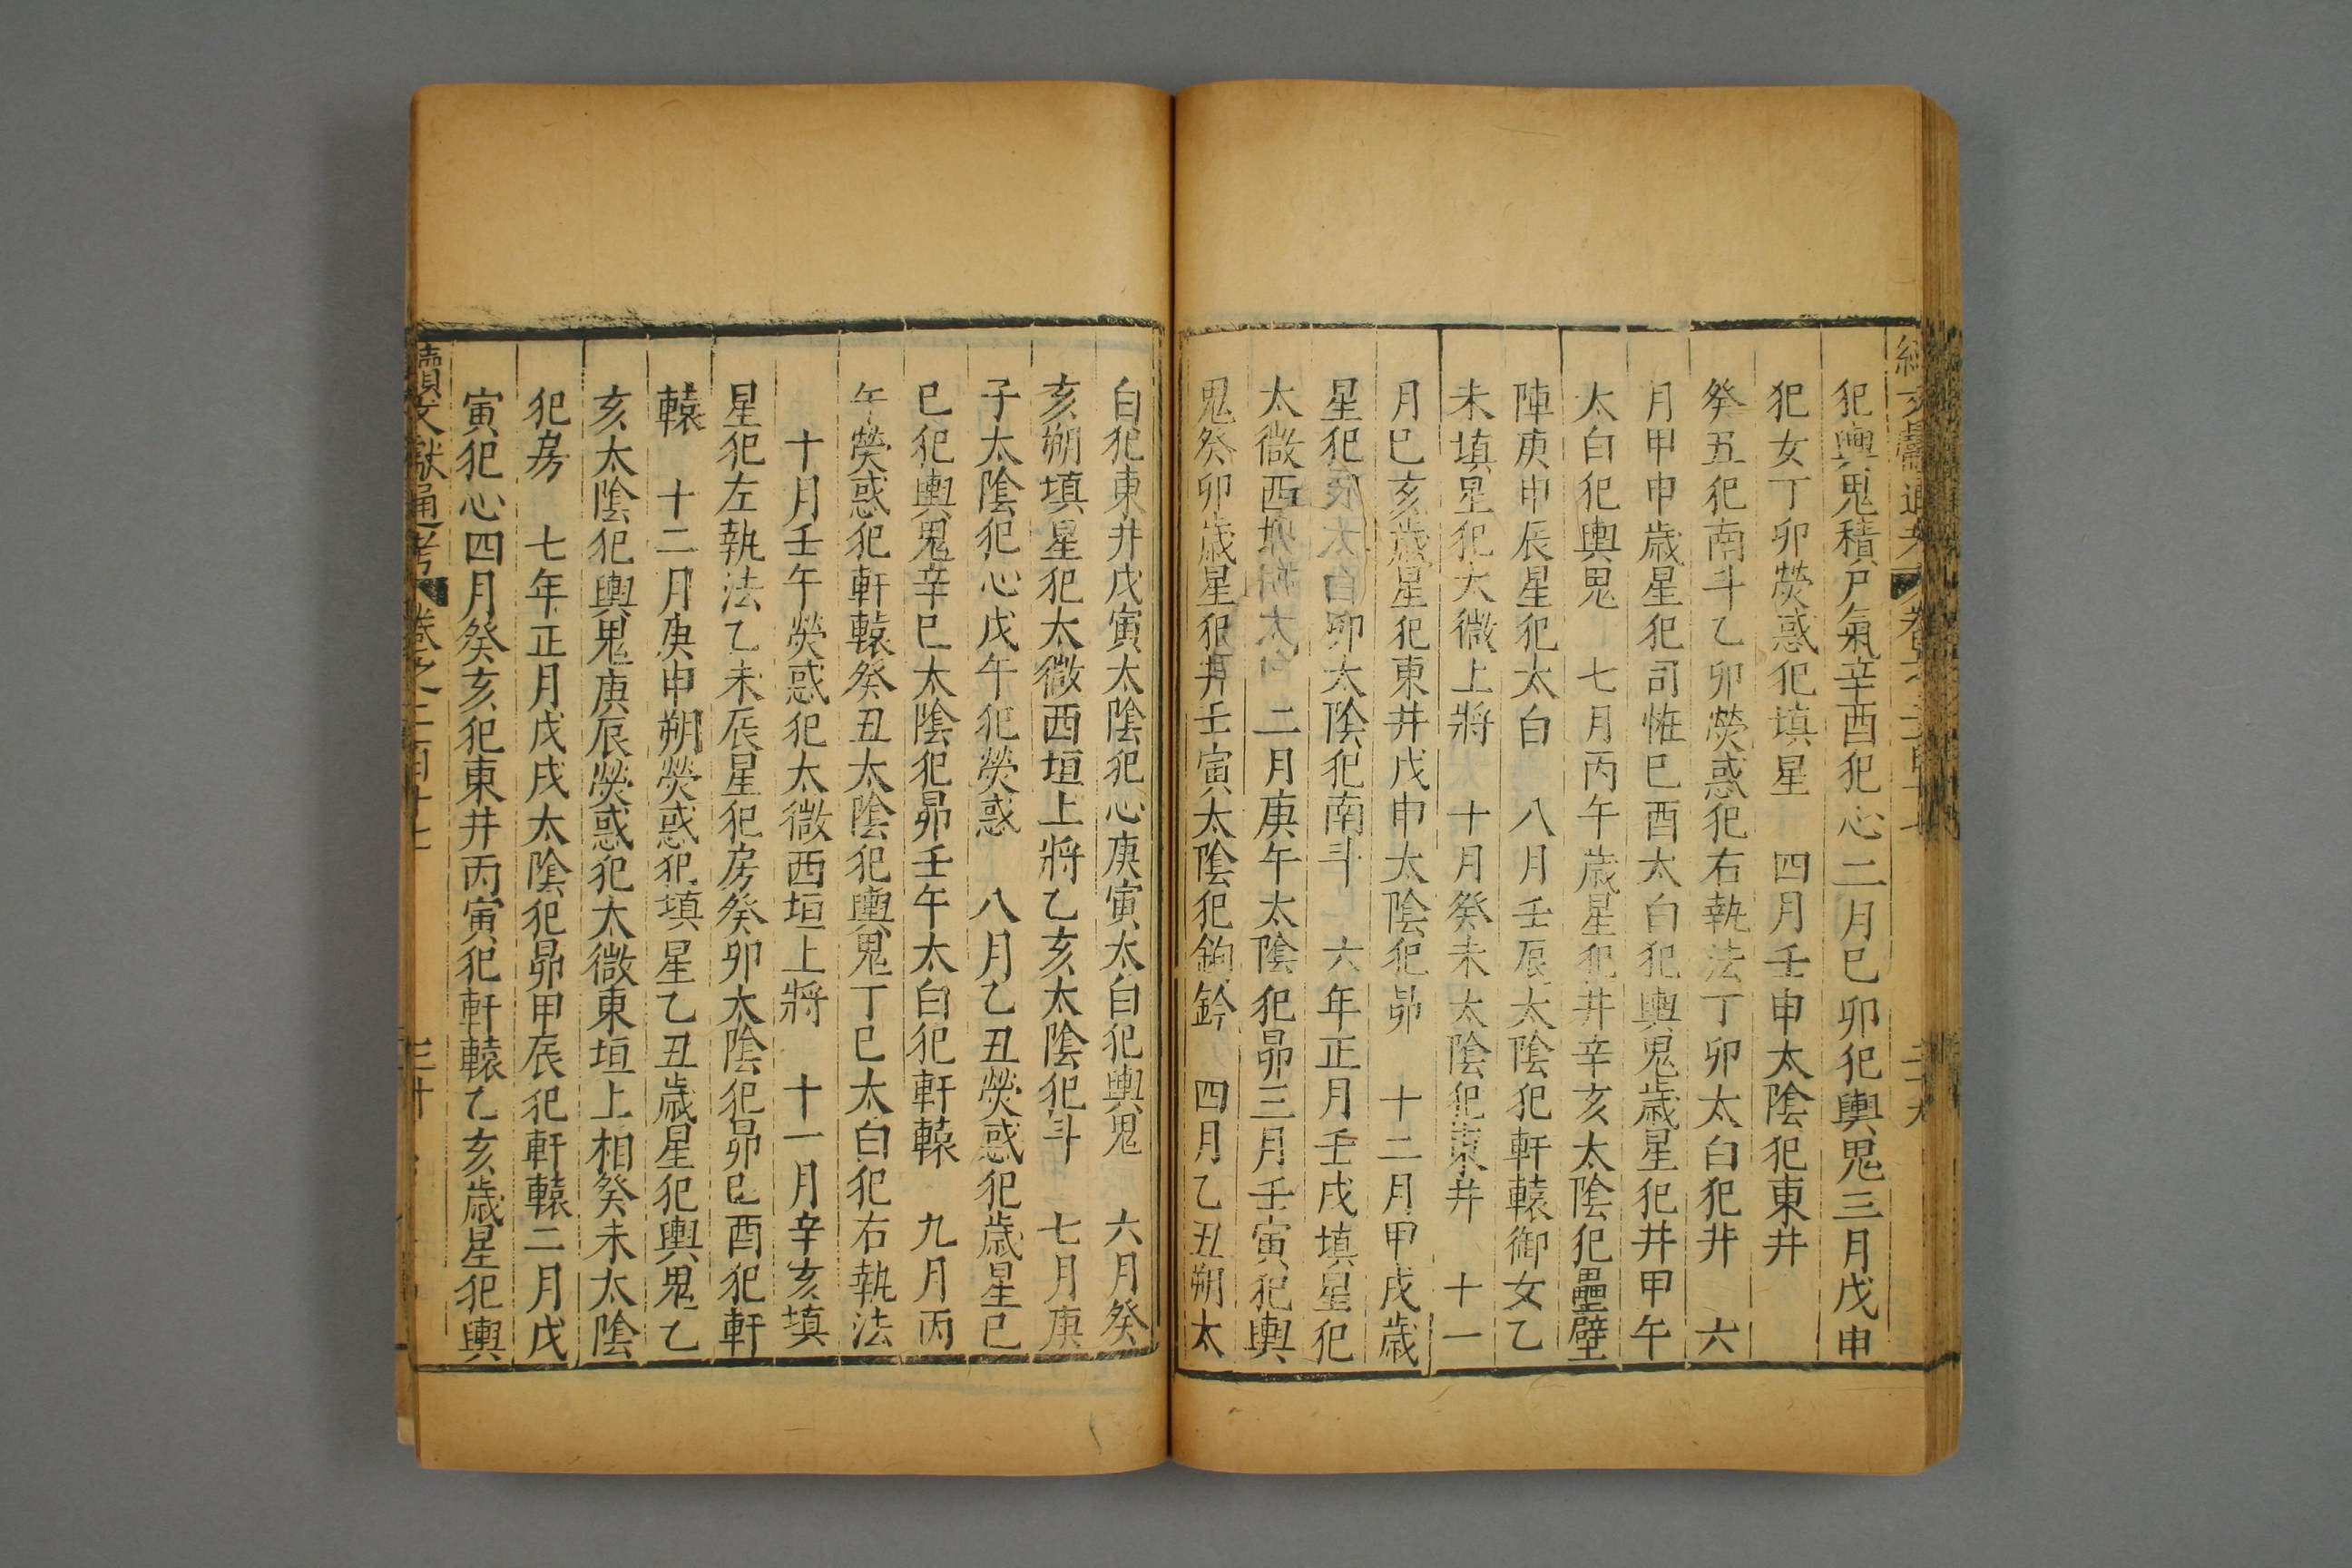 犯輿鬼積尸氣辛酉犯心二月巳卯犯輿鬼三月戊申
犯女丁卯熒惑犯填星 四月壬申太陰犯東井
癸五犯南斗乙卯熒惑犯右執法丁卯太白犯井 六
月甲申歲星犯司恠巳酉太白犯輿鬼歲星犯井甲午
太白犯輿鬼 七月丙午歲星犯井辛亥太陰犯壘壁
陣庚申辰星犯太白 八月壬辰太陰犯軒轅御女乙
未填星犯太微上將 十月癸未太陰犯東井 十一
月巳亥歲星犯東井戊申太陰犯昴 十二月甲戌歲
星犯 太白 卯太陰犯南斗 六年正月壬戌填星犯
太微西 二月庚午太陰犯昴三月壬寅犯輿
鬼癸卯歲星犯井壬寅太陰犯鉤鈐 四月乙丑朔太
白犯東井戊寅太陰犯心庚寅太白犯輿鬼 六月癸
亥朔填星犯太微西垣上將乙亥太陰犯斗 七月庚
子太陰犯心戊午犯熒惑 八月乙丑熒惑犯歲星巳
巳犯輿鬼辛巳太陰犯昴壬午太白犯軒轅 九月丙
午熒惑犯軒轅癸丑太陰犯輿鬼丁巳太白犯右執法
十月壬午熒惑犯太微西垣上將 十一月辛亥填
星犯左執法乙未辰星犯房癸卯太陰犯昴巳酉犯軒
轅 十二月庚申朔熒惑犯填星乙丑歲星犯輿鬼乙
亥太陰犯輿鬼庚辰熒惑犯太微東垣上相癸未太陰
犯房 七年正月戊戌太陰犯昴甲辰犯軒轅二月戊
寅犯心四月癸亥犯東井丙寅犯軒轅乙亥歲星犯輿
續文獻通考 卷之二百十七 三十